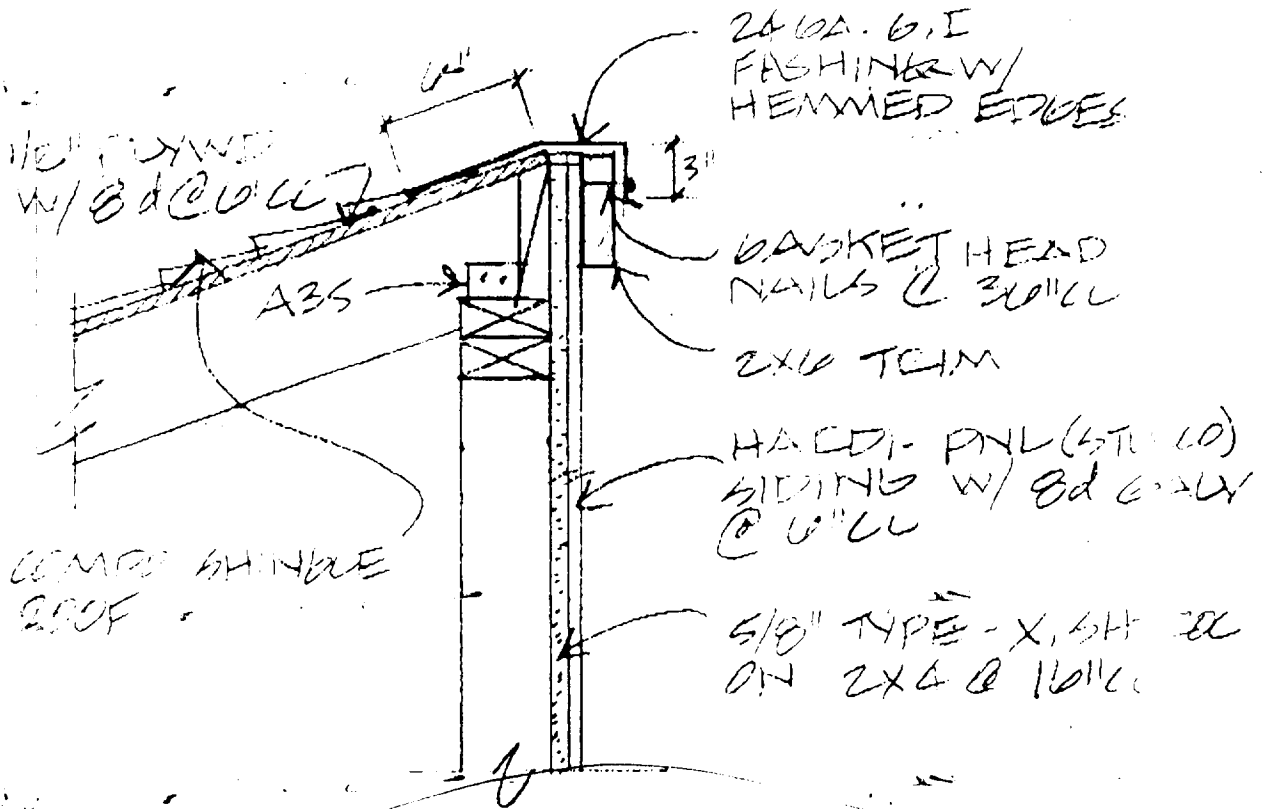 24 GA. G.I
FASHING W/
HEMMED EDGES
6"
PLYWD
W/ 8d @ 6"CC
3"
GASKET HEAD
NAILS @ 36"CC
A35
2X6 TRIM
HARDI-PNL
SIDING W/ 8d GALV
@ 6"CC
COMPO SHINGLE
ROOF
5/8" TYPE-X,
ON 2X4 @ 16"C